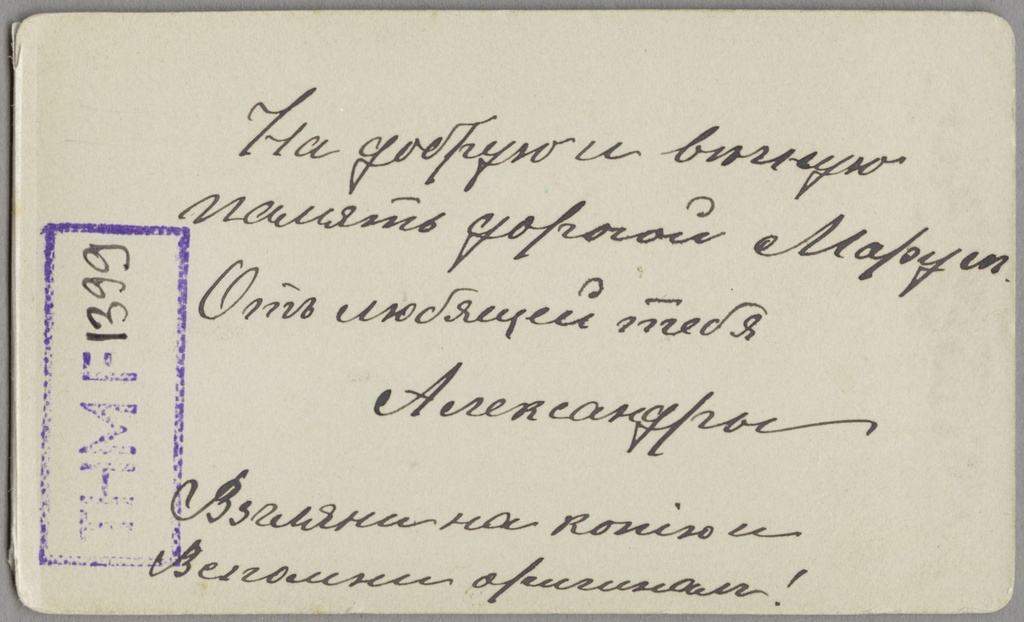 На добрую и вѣчную
память дорогой Марусѣ.
Отъ любящей тебя
Александры
Взгляни на копію и
Вспомни оригиналъ!
THMF1399